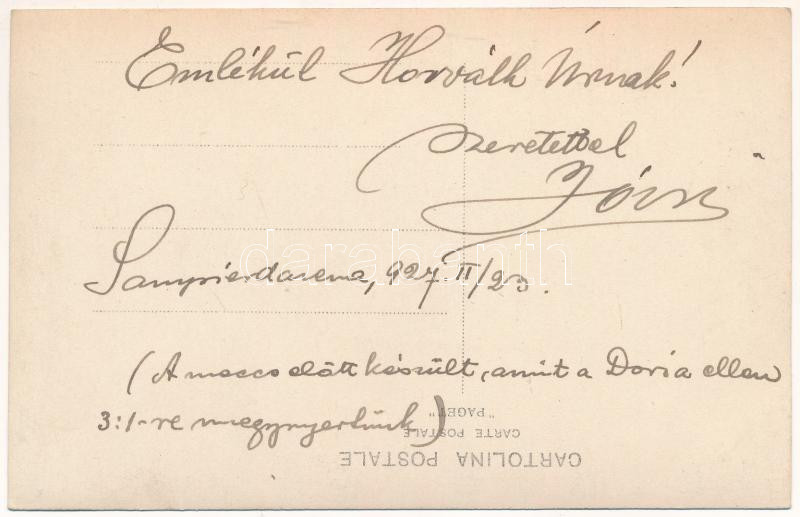 Emlékül Horváth Úrnak!
Szeretettel
Józsi
Sampierdarena, 927 II/23.
(A meccs előtt készült, amit a Doria ellen
3:1-re megnyertünk)
"PAGET"
CARTE POSTALE
CARTOLINA POSTALE
darabanth